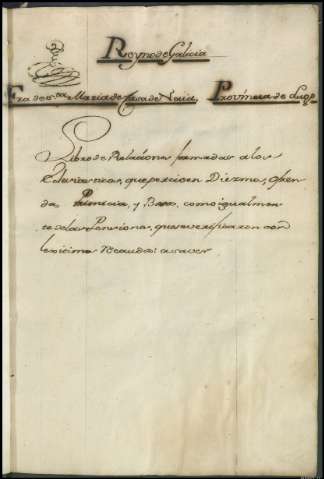 Reyno de Galicia
Fra de Sta Maria de Casa de Naia Provincia de Lugo
Libro de Relaciones formadas a los
Eclesiasticos, que perciven Diezmo, ofren
da, Primicia, y Boto, como igualmen
te de las Penziones, que se verifican con
lexitimo Recaudo: a saver